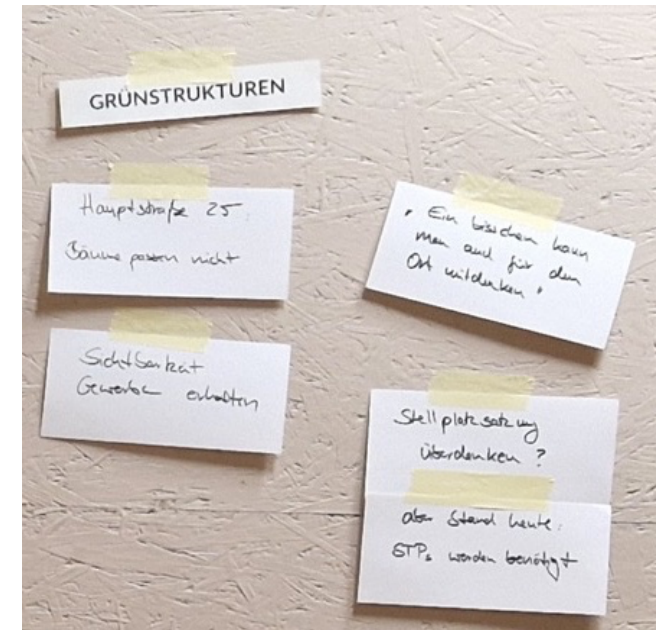 GRÜNSTRUKTUREN
Hauptstraße 25:
Bäume passen nicht
Sichtbarkeit
Gewerbe erhalten
„Ein bisschen kann
man auch für den
Ort mitdenken"
Stellplatzsatzung
überdenken?
aber Stand heute:
STPs werden benötigt